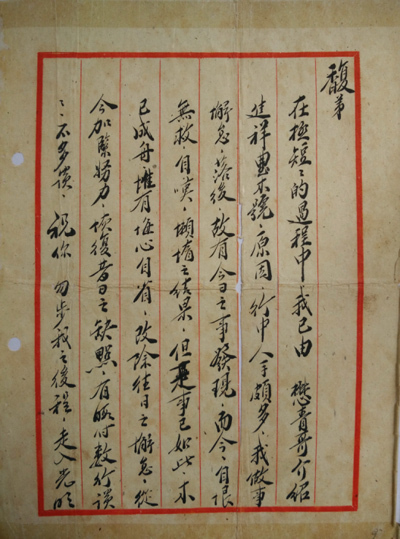 馥弟
在極短々的過程中,我已由 懋青哥介紹
進祥 木號。原因,行中人手頗多,我做事
懈怠。落後。故有今日之事發現。而今,自恨
無救。自嘆,懶惰之結果。但是事已如此。木
已成舟。惟有悔心自省。改除往日之懈怠。從
今加緊努力, 復昔日之缺點。有暇付數行談
々。不多談。祝你 勿步我之後程,走入光明